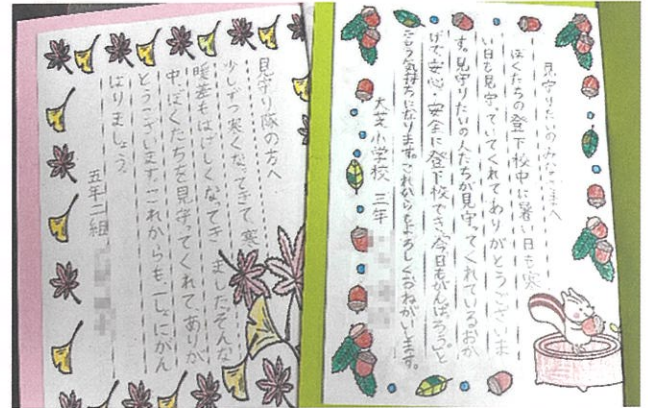 見守りたいのみなさまへ
ぼくたちの登下校中に暑い日も寒
い日も見守っていてくれてありがとうございま
す。見守りたいの人たちが見守ってくれているおか
げで、安心、安全に登下校でき、「今日もがんばろう」と
いう気持ちになります。これからもよろしくおねがいします。
大芝小学校 三年
見守り隊の方へ
少しずつ寒くなってきて、寒
暖差もはげしくなってきました。そんな
中、ぼくたちを見守ってくれてありが
とうございます。これからも、一しょにがん
ばりましょう。
五年二組